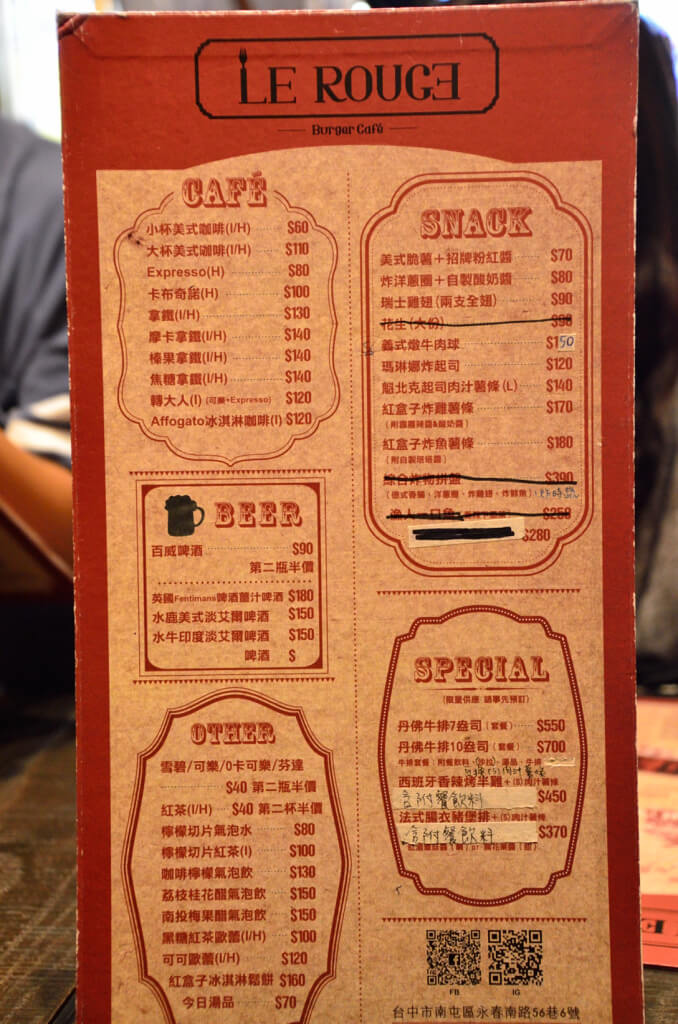 LE ROUGE
Burger Café
CAFÉ
小杯美式咖啡(I/H) $60
大杯美式咖啡(I/H) $110
Expresso(H) $80
卡布奇諾(H) $100
拿鐵(I/H) $130
摩卡拿鐵(I/H) $140
榛果拿鐵(I/H) $140
焦糖拿鐵(I/H) $140
轉大人(I) (可樂+Expresso) $120
Affogato冰淇淋咖啡(I) $120
BEER
百威啤酒 $90
第二瓶半價
英國Fentimans啤酒薑汁啤酒 $180
水鹿美式淡艾爾啤酒 $150
水牛印度淡艾爾啤酒 $150
啤酒 $
OTHER
雪碧/可樂/0卡可樂/芬達
$40 第二瓶半價
紅茶(I/H) $40 第二杯半價
檸檬切片氣泡水 $80
檸檬切片紅茶(I) $100
咖啡檸檬氣泡飲 $130
荔枝桂花醋氣泡飲 $150
南投梅果醋氣泡飲 $150
黑糖紅茶歐蕾(I/H) $100
可可歐蕾(I/H) $120
紅盒子冰淇淋鬆餅 $160
今日湯品 $70
SNACK
美式脆薯＋招牌粉紅醬 $70
炸洋蔥圈＋自製酸奶醬 $80
瑞士雞翅(兩支全翅) $90
花生(大份) $90
義式燉牛肉球 $150
瑪琳娜炸起司 $120
魁北克起司肉汁薯條(L) $140
紅盒子炸雞薯條 $170
(附霹靂辣醬&酸奶醬)
紅盒子炸魚薯條 $180
(附自製塔塔醬)
綜合炸物拼盤 $390
(德式香腸、洋蔥圈、炸雞翅、炸鮮魚)
$250
$280
SPECIAL
(限量供應 請事先預訂)
丹佛牛排7盎司(套餐) $550
丹佛牛排10盎司(套餐) $700
牛排套餐：附餐飲料、沙拉、湯品、牛排
西班牙香辣烤半雞+(S)肉汁薯條
含附餐飲料 $450
法式腸衣豬堡排+(S)肉汁薯條
含附餐飲料 $370
FB IG
台中市南屯區永春南路56巷6號